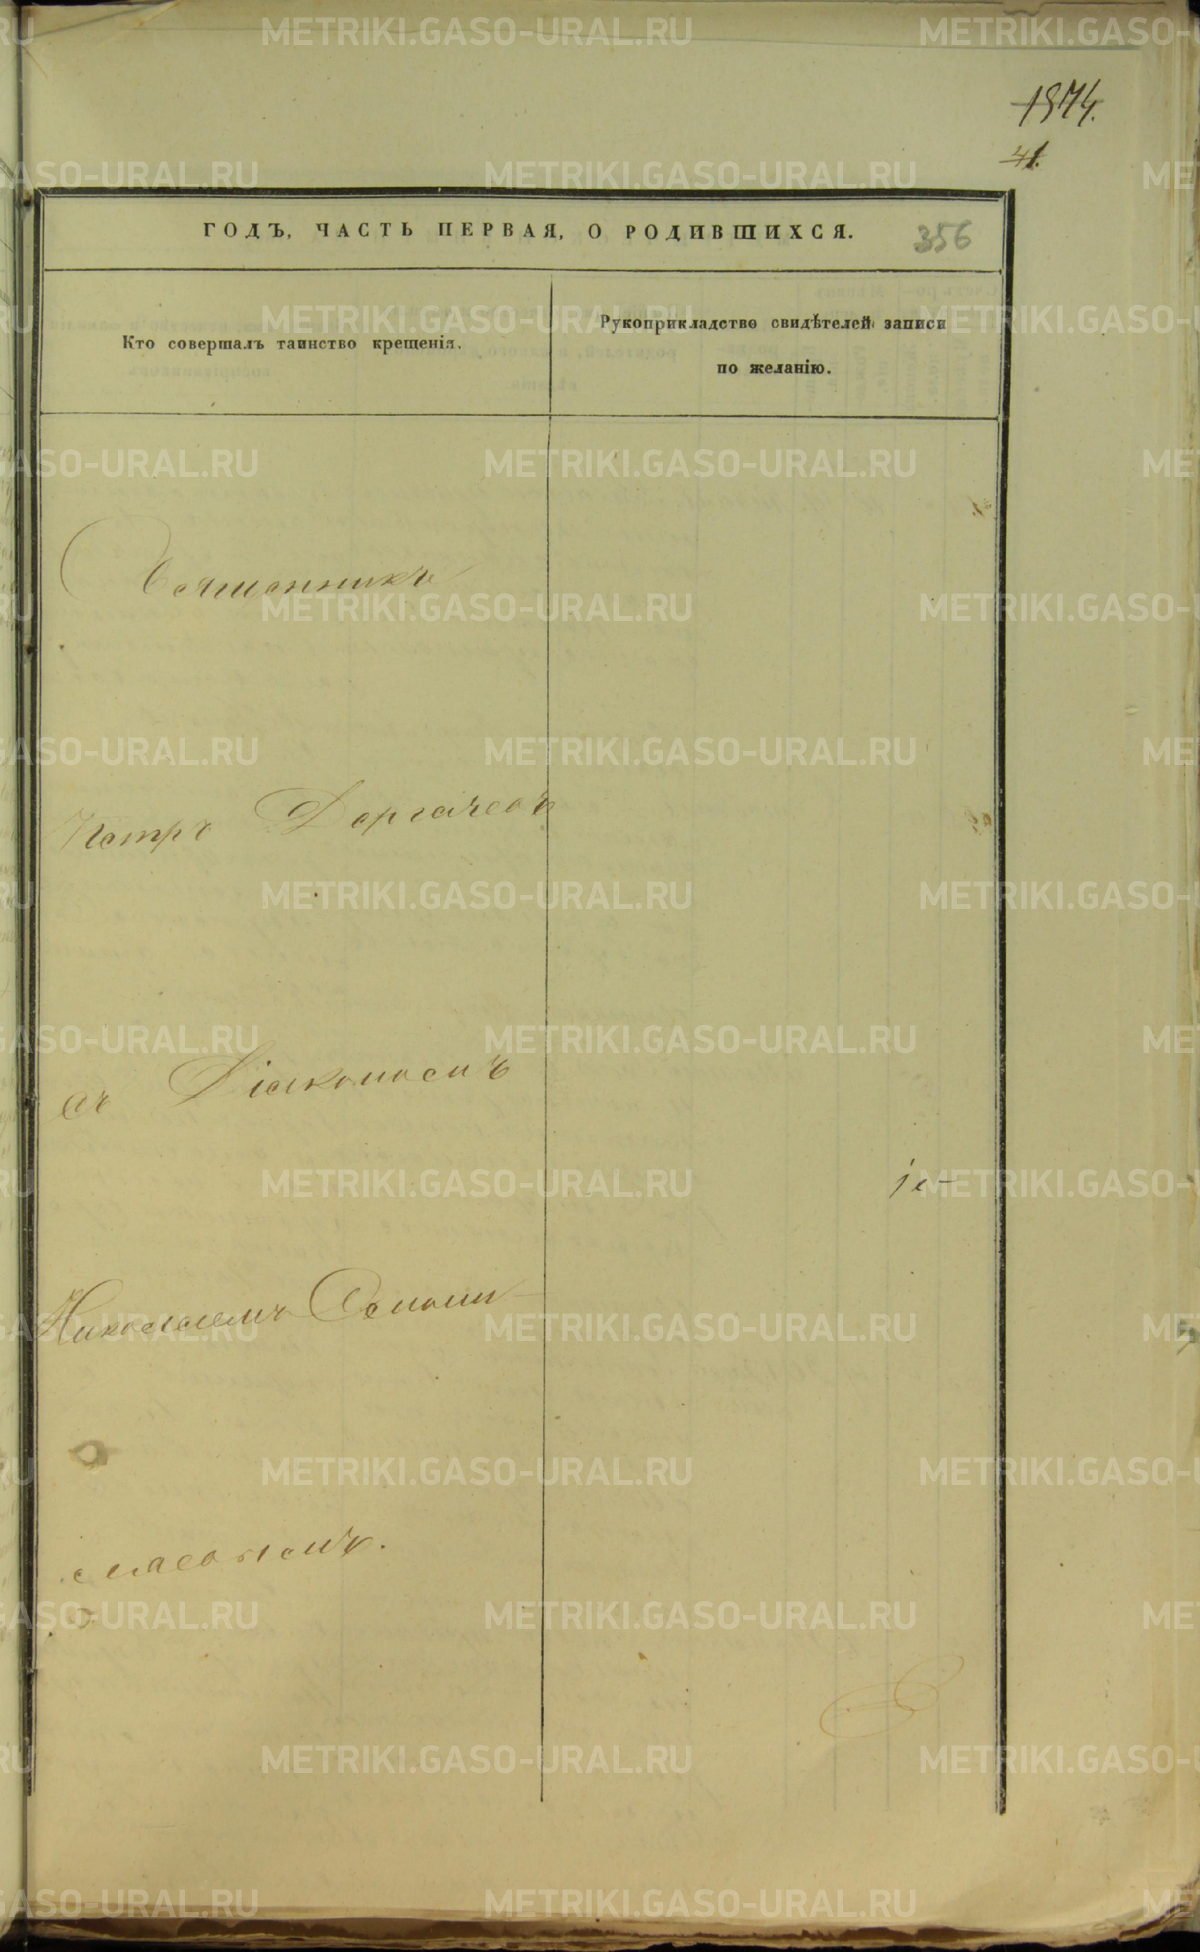 1974.
41.
ГОДЪ, ЧАСТЬ ПЕРВАЯ, О РОДИВШИХСЯ.
356
Кто совершалъ таинство крещенія.
Рукоприкладство свидѣтелей записи
по желанію.
Священникъ
Петръ Дергачевъ
съ Діакономъ
je-
Николаемъ
METRIKI.GASO-URAL.RU